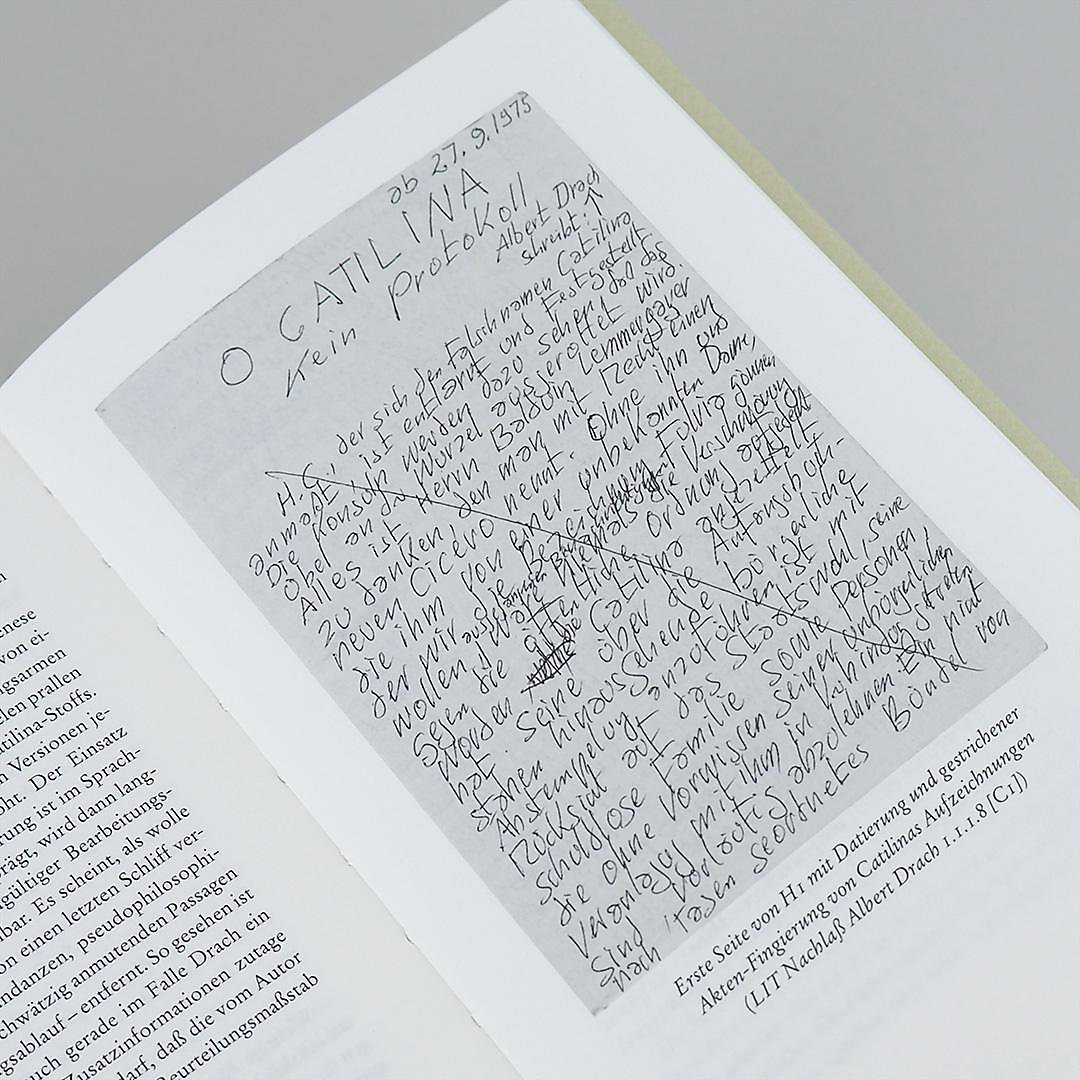 enese
von ei-
gsarmen
elen prallen
tilina-Stoffs.
n Versionen je-
oht. Der Einsatz
rung ist im Sprach-
rägt, wird dann lang-
gültiger Bearbeitungs-
bar. Es scheint, als wolle
on einen letzten Schliff ver-
ndanzen, pseudophilosophi-
chwätzig anmutenden Passagen
gsablauf – entfernt. So gesehen ist
uch gerade im Falle Drach ein
Zusatzinformationen zutage
darf, daß die vom Autor
Beurteilungsmaßstab
ab 27.9.1975
O CATILINA
Kein Protokoll
Albert Drach
schreibt:
H.C., der sich den Falschnamen Catilina
anmaßt, ist entlarvt und festgestellt
Die Konsuln werden dazu sehen, daß das
Übel an der Wurzel ausgerottet wird.
Alles ist Herrn Balduin Lemmergayer
zu danken, den man mit Recht einen
neuen Cicero nennt. Ohne ihn und
die ihm von einer unbekannten Dame,
der wir die Bezeichnung Fulvia gönnen
wollen, wäre die Verschwörung
seine über die bürgerliche
hinaus
Abstempelung anzuführen, ist mit
Rücksicht auf das Staatswohl, seine
schuldlose Familie sowie Personen,
die ohne Vorwissen seiner unbürgerlichen
Veranlagung mit ihm in Verbindung
sind vorläufig abzulehnen. Ein nicht
nach Tagen geordnetes Bündel von
Erste Seite von H1 mit Datierung und gestrichener
Akten-Fingierung von Catilinas Aufzeichnungen
(LIT Nachlaß Albert Drach 1.1.1.8 [C1])